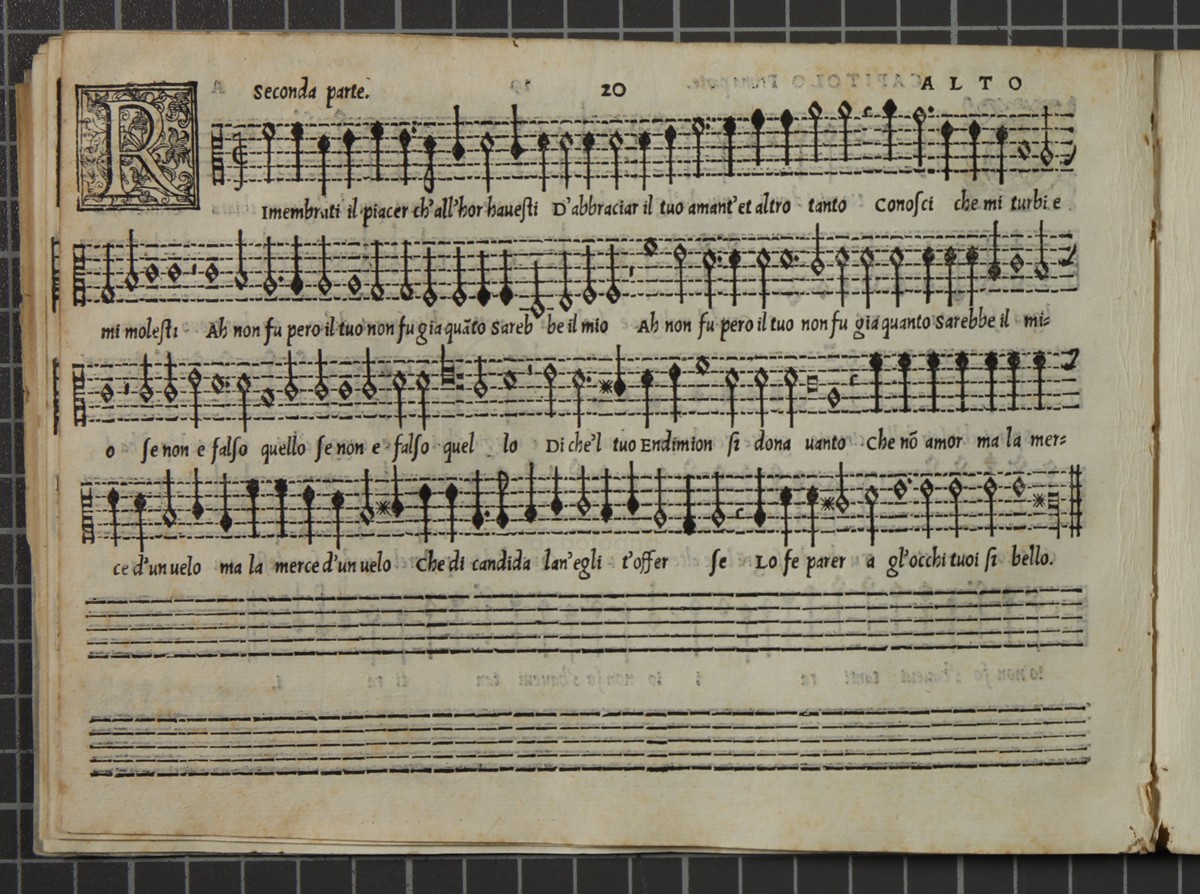 Seconda parte. 20 ALTO
R Imembrati il piacer ch'all'hor hauesti D'abbraciar il tuo amant'et altro tanto Conosci che mi turbi e
mi molesti Ah non fu pero il tuo non fu gia quãto Sareb be il mio Ah non fu pero il tuo non fu gia quanto Sarebbe il mi=
o se non e falso quello se non e falso quel lo Di che'l tuo Endimion si dona uanto Che nõ amor ma la mer=
ce d'un uelo ma la merce d'un uelo Che di candida lan'egli t'offer se Lo fe parer a gl'occhi tuoi si bello.